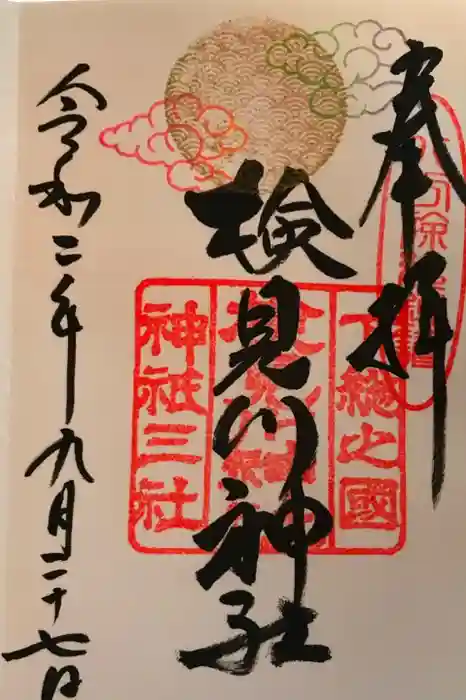 奉拝
検見川神社
令和二年九月二十七日
下総之國
神祇三社